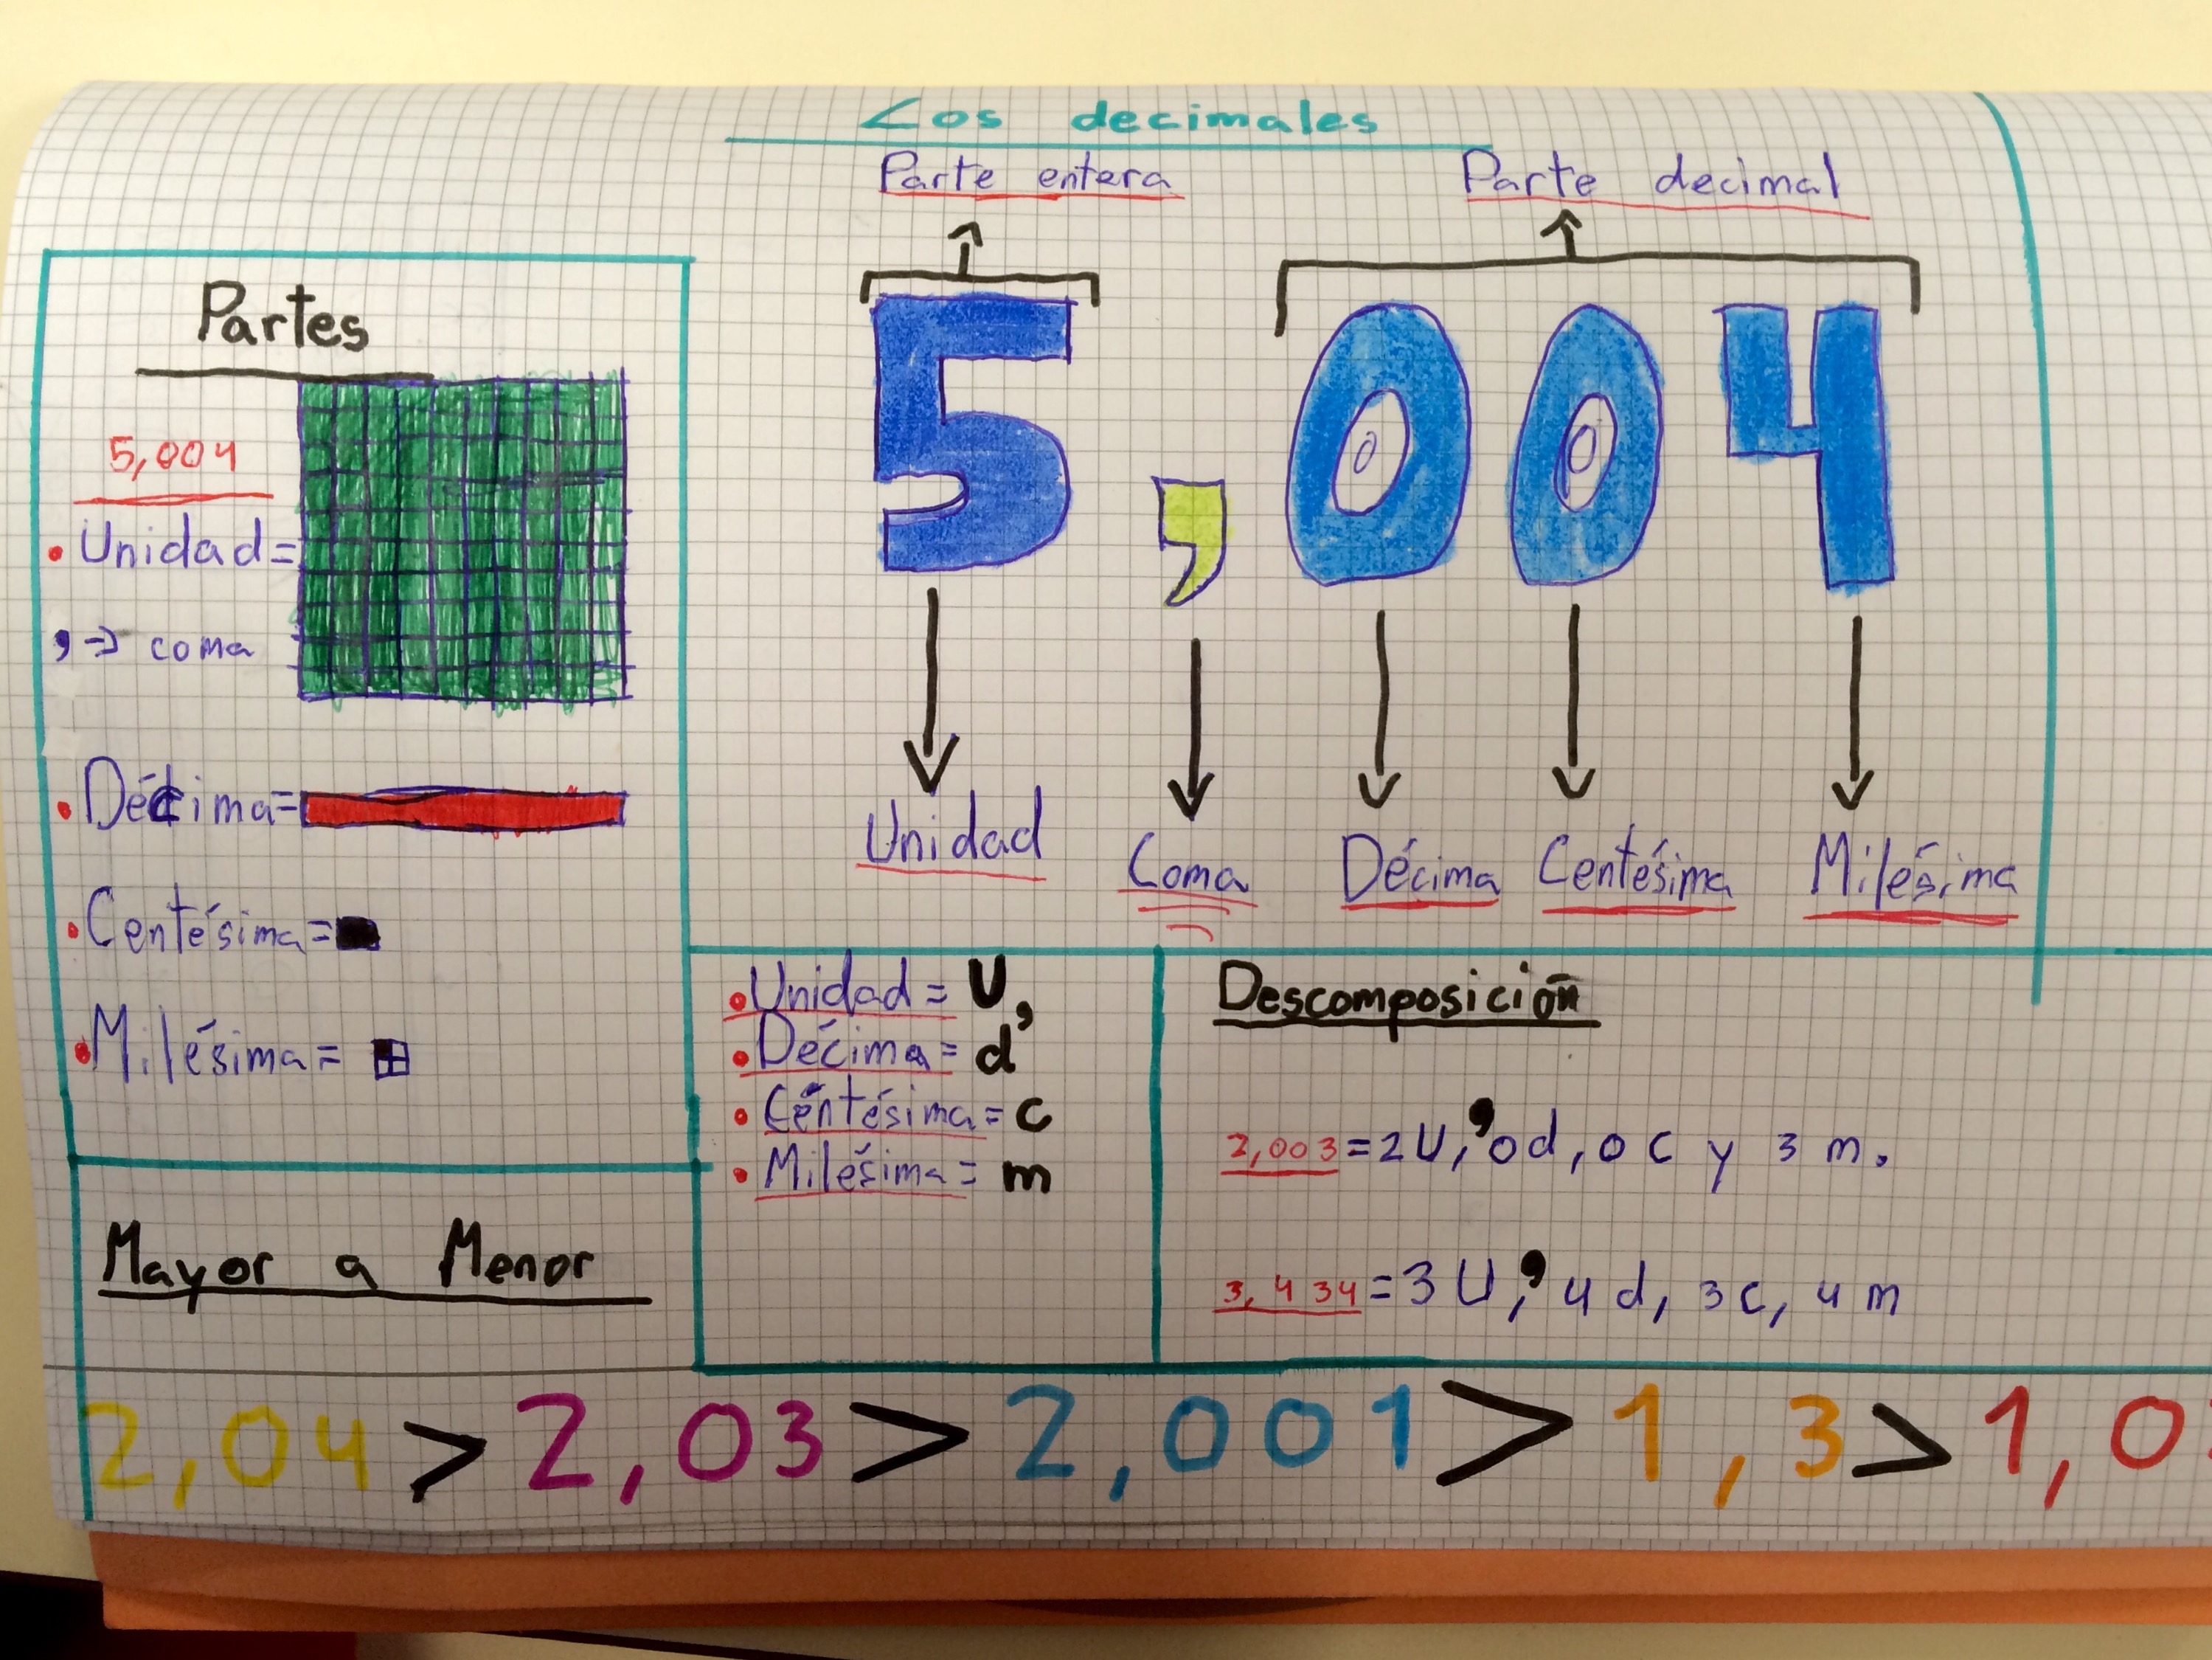 Los decimales
Parte entera
Parte decimal
5,004
Unidad
Coma
Décima
Centésima
Milésima
Partes
5,004
• Unidad=
, → coma
• Décima=
• Centésima=
• Milésima=
• Unidad= U,
• Décima= d
• Centésima= c
• Milésima= m
Descomposición
2,003=2U, 0d, 0c y 3 m.
3,434=3U, 4d, 3c, 4m
Mayor a Menor
2,04 > 2,03 > 2,001 > 1,3 > 1,0